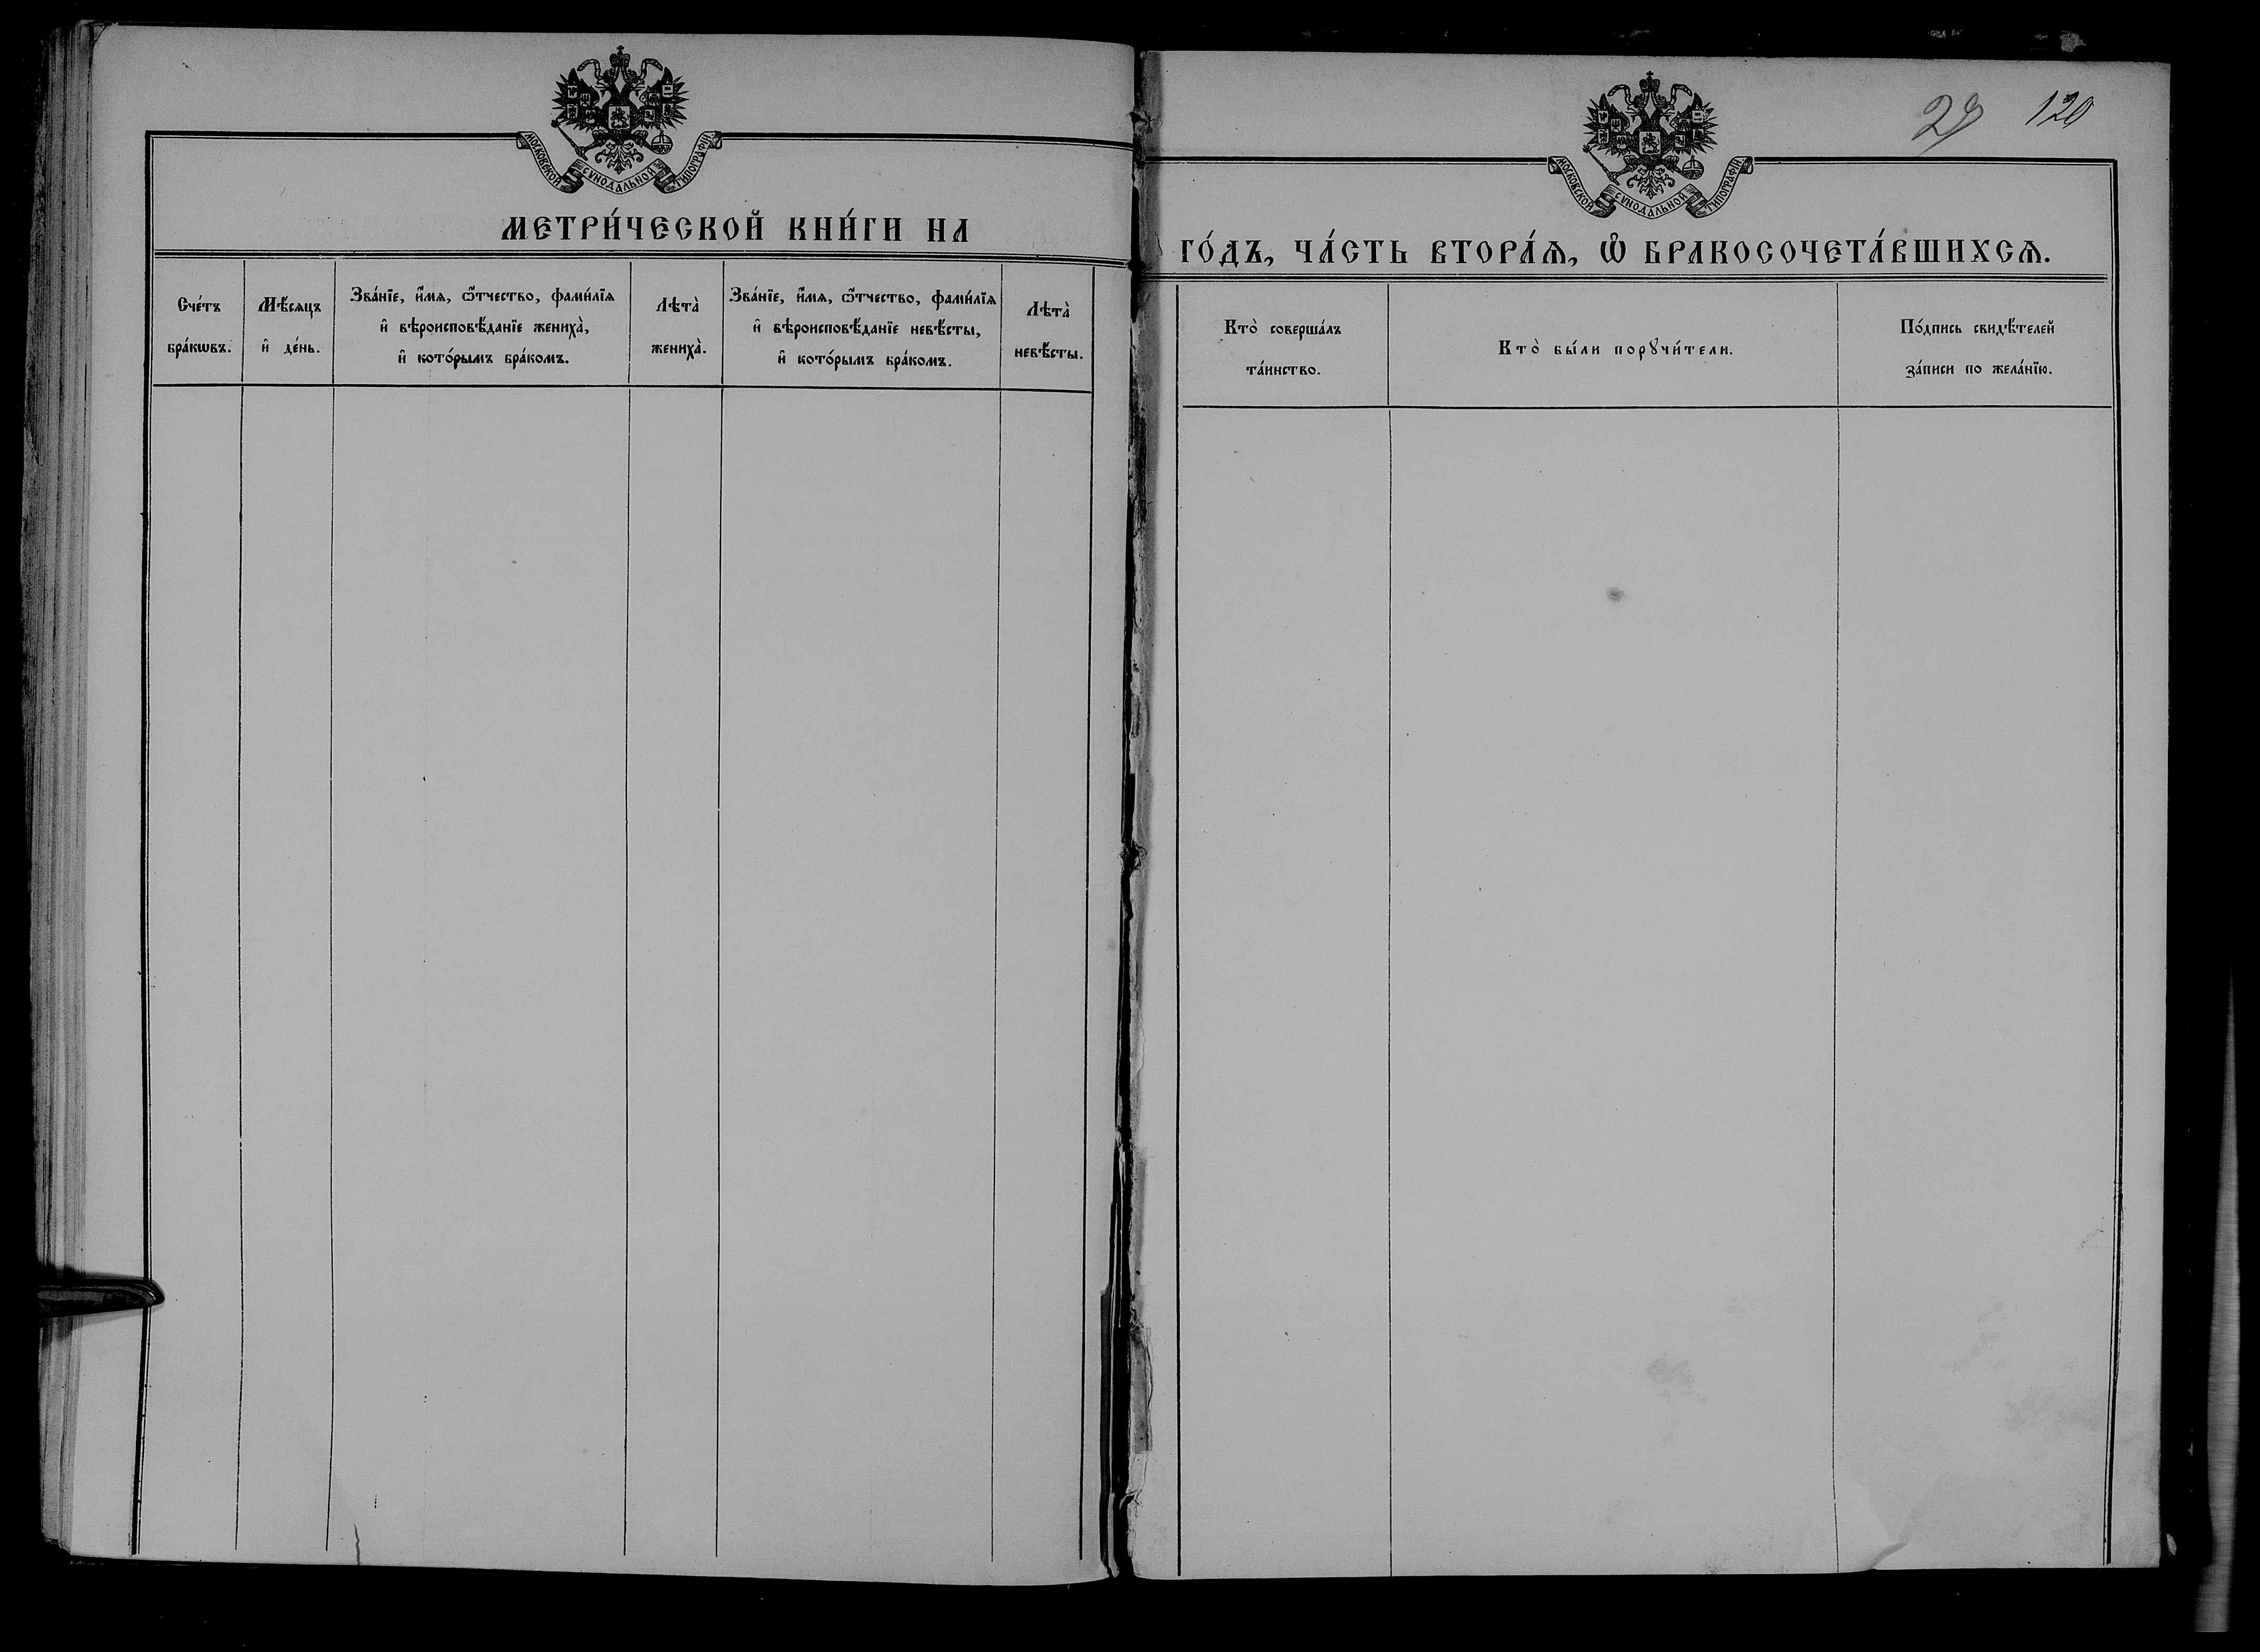 МОСКОВСКОЙ СѴНОДАЛЬНОЙ ТИПОГРАФІИ
МЕТРИ́ЧЕСКОЙ КНИ́ГИ НА
Сче́тъ
бра́кѡвъ.
Мѣ́сяцъ
и҆ де́нь.
Зва́нїе, и҆́мѧ, ѻ҆́тчество, фами́лїѧ
и҆ вѣроисповѣ́данїе жениха̀,
и҆ кото́рымъ бра́комъ.
Лѣта̀
жениха̀.
Зва́нїе, и҆́мѧ, ѻ҆́тчество, фами́лїѧ
и҆ вѣроисповѣ́данїе невѣ́сты,
и҆ кото́рымъ бра́комъ.
Лѣта̀
невѣ́сты.
29 120
МОСКОВСКОЙ СѴНОДАЛЬНОЙ ТИПОГРАФІИ
ГО́ДЪ, ЧА́СТЬ ВТОРА́Ѧ, Ѡ҆ БРАКОСОЧЕТА́ВШИХСѦ.
Кто̀ соверша́лъ
та́инство.
Кто̀ бы́ли порꙋчи́тели.
По́дпись свидѣ́телей
за́писи по жела́нїю.